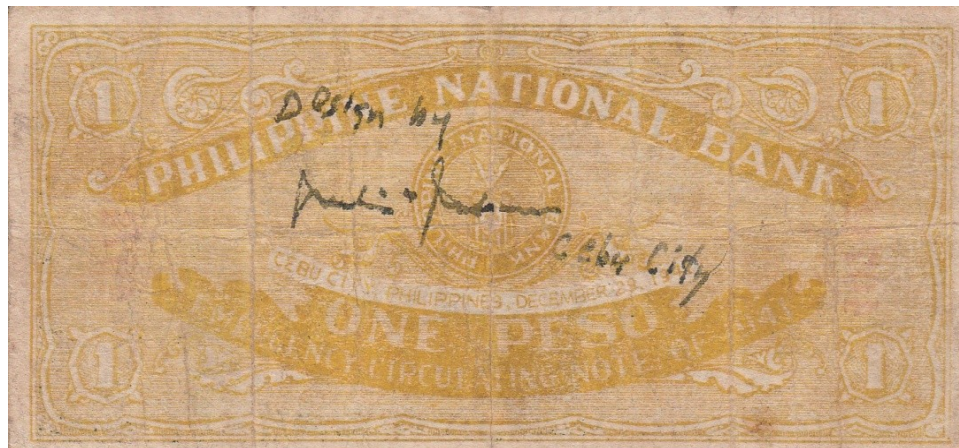 1 1
PHILIPPINE NATIONAL BANK
Design by
Cebu City
CEBU CITY, PHILIPPINES, DECEMBER 29,
ONE PESO
CIRCULATING NOTE
1 1